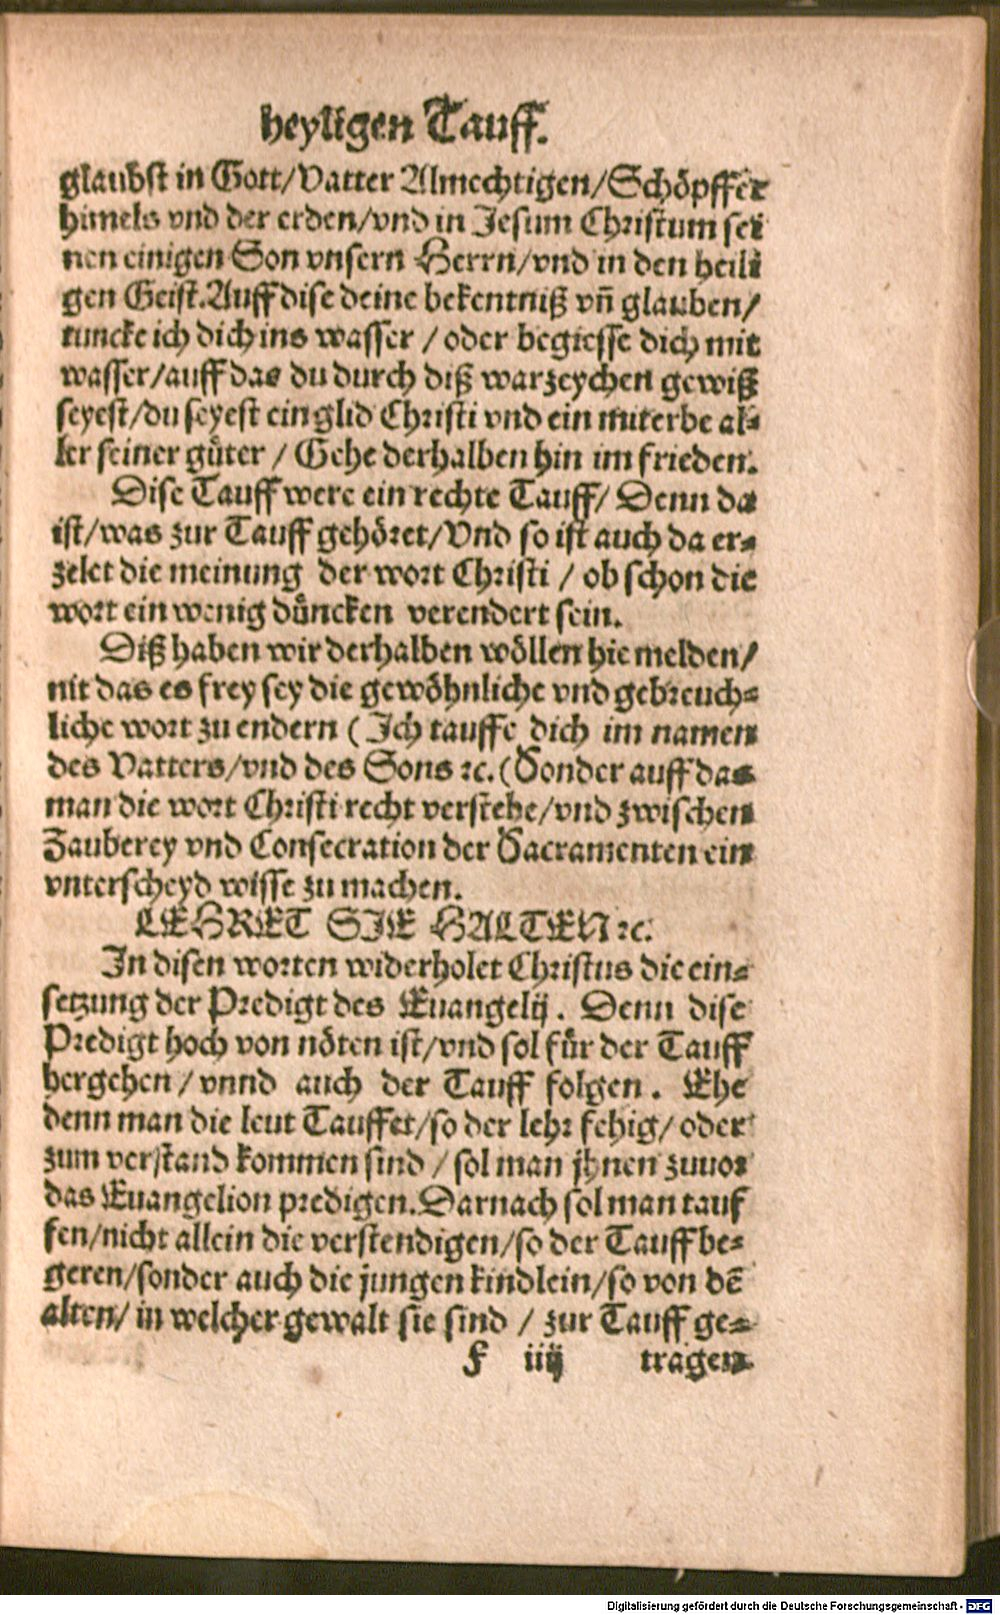 heyligen Tauff.
glaubst in Gott/Vatter Almechtigen/Schöpffer
himels vnd der erden/vnd in Jesum Christum sei
nen einigen Son vnsern Herrn/vnd in den heili
gen Geist.Auff dise deine bekentniß vn̄ glauben/
tuncke ich dich ins wasser / oder begiesse dich mit
wasser/auff das du durch diß warzeychen gewiß
seyest/du seyest ein glid Christi vnd ein miterbe al-
ler seiner guͤter / Gehe derhalben hin im frieden.
Dise Tauff were ein rechte Tauff/ Denn da
ist/was zur Tauff gehöret/Vnd so ist auch da er-
zelet die meinung der wort Christi / ob schon die
wort ein wenig duͤncken verendert sein.
Diß haben wir derhalben wöllen hie melden/
nit das es frey sey die gewöhnliche vnd gebreuch-
liche wort zu endern ( Ich tauffe dich im namen
des Vatters/vnd des Sons ꝛc.(Sonder auff das
man die wort Christi recht verstehe/vnd zwischen
Zauberey vnd Consecration der Sacramenten ein
vnterscheyd wisse zu machen.
LEHRET SIE HALTEN ꝛc.
In disen worten widerholet Christus die ein-
setzung der Predigt des Euangelij. Denn dise
Predigt hoch von nöten ist/vnd sol fuͤr der Tauff
hergehen/vnnd auch der Tauff folgen. Ehe
denn man die leut Tauffet/so der lehr fehig/oder
zum verstand kommen sind / sol man jhnen zuuor
das Euangelion predigen.Darnach sol man tauf
fen/nicht allein die verstendigen/so der Tauff be-
geren/sonder auch die jungen kindlein/so von dē
alten/in welcher gewalt sie sind / zur Tauff ge-
F iiij tragen
Digitalisierung gefördert durch die Deutsche Forschungsgemeinschaft - DFG